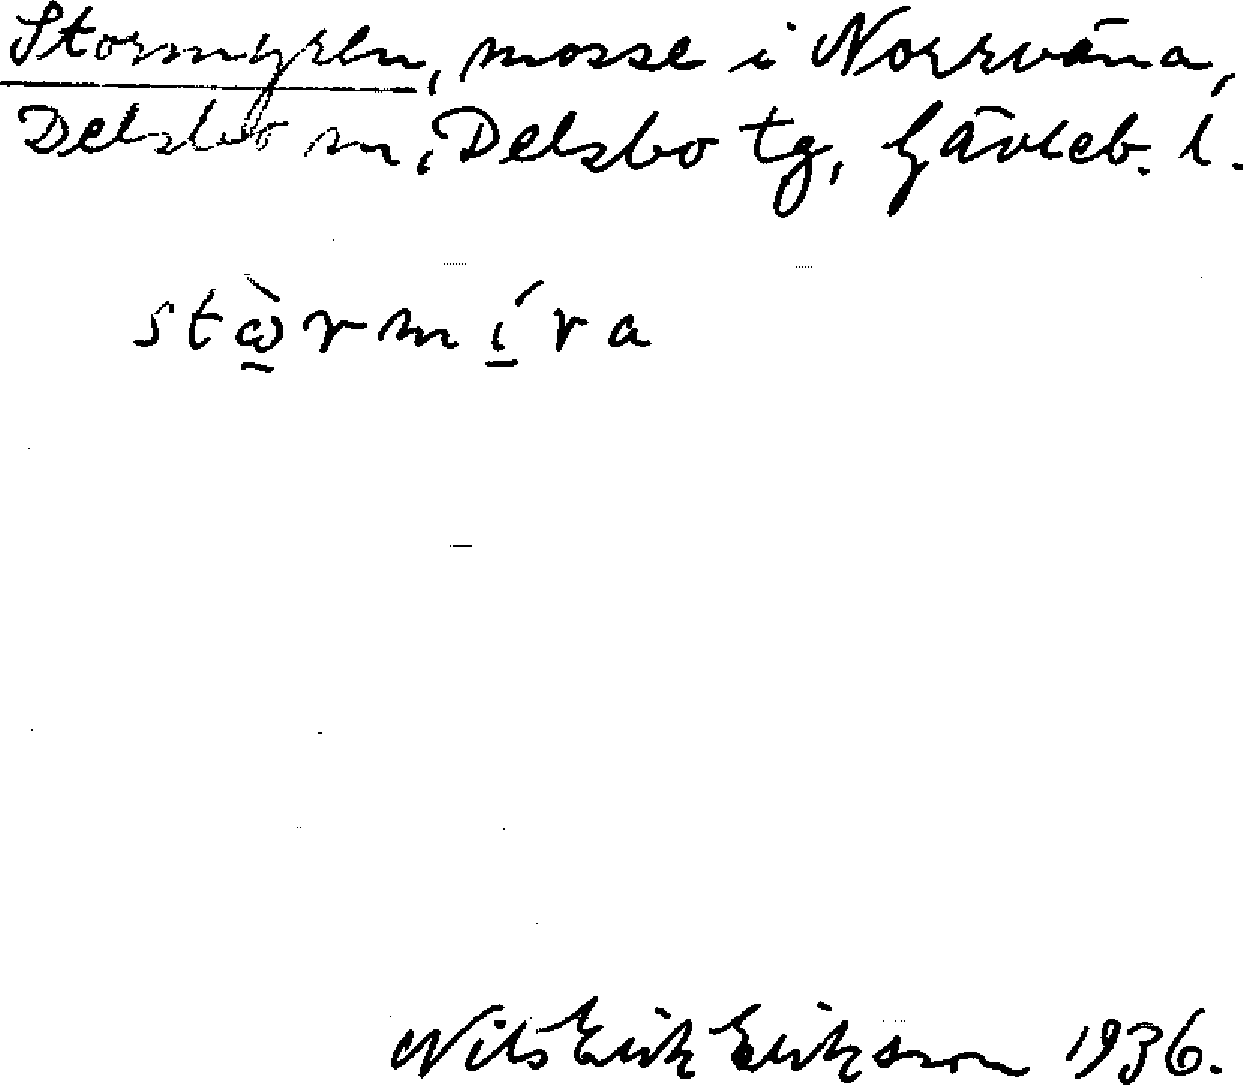 Stormyren, mosse i Norrväna,
Delsbo sn, Delsbo tg, Gävleb. l.
stὼ̱rmí̱ra
Nils Erik Eriksson 1936.